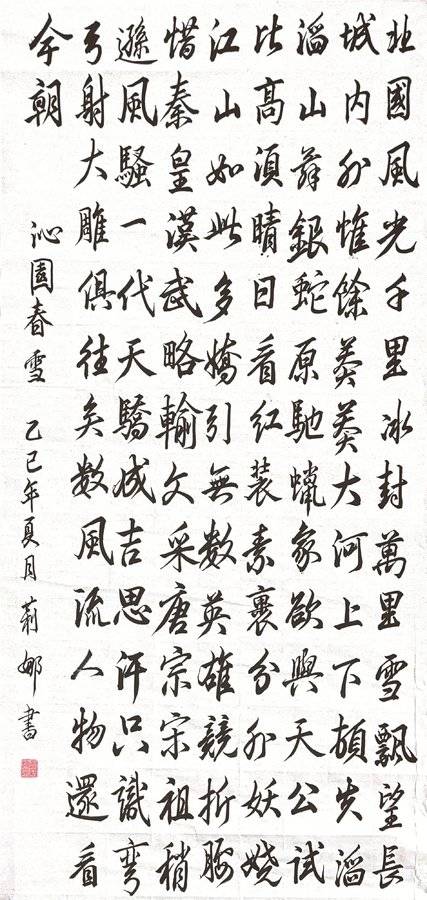 北國風光千里冰封萬里雪飄望長
城內外惟餘莽莽大河上下頓失滔
滔山舞銀蛇原馳蠟象欲與天公試
比高須晴日看红装素裹分外妖嬈
江山如此多嬌引無數英雄競折腰
惜秦皇漢武略輸文采唐宗宋祖稍
遜風騷一代天驕成吉思汗只識彎
弓射大雕俱往矣數風流人物還看
今朝
沁園春雪 乙巳年夏月莉娜書